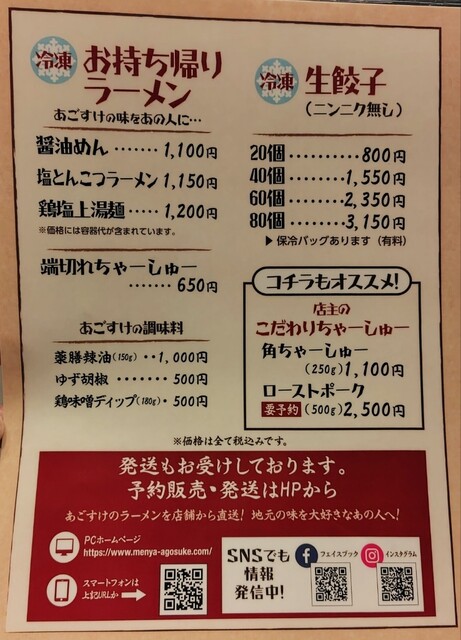 冷凍 お持ち帰り
ラーメン
あごすけの味をあの人に…
醤油めん ······· 1,100円
塩とんこつラーメン 1,150円
鶏塩上湯麺 ····· 1,200円
※価格には容器代が含まれています。
端切れちゃーしゅー
······ 650円
あごすけの調味料
薬膳辣油(150g) ·· 1,000円
ゆず胡椒 ········ 500円
鶏味噌ディップ(180g) · 500円
冷凍 生餃子
(ニンニク無し)
20個 ·········· 800円
40個 ········ 1,550円
60個 ········ 2,350円
80個 ········ 3,150円
▶保冷バッグあります(有料)
コチラもオススメ!
店主の
こだわりちゃーしゅー
角ちゃーしゅー
(250g) 1,100円
ローストポーク
要予約 (500g) 2,500円
※価格は全て税込みです。
発送もお受けしております。
予約販売・発送はHPから
あごすけのラーメンを店舗から直送! 地元の味を大好きなあの人へ!
PCホームページ
https://www.menya-agosuke.com/
スマートフォンは
上記URLか
SNSでも
情報
発信中!
フェイスブック
インスタグラム